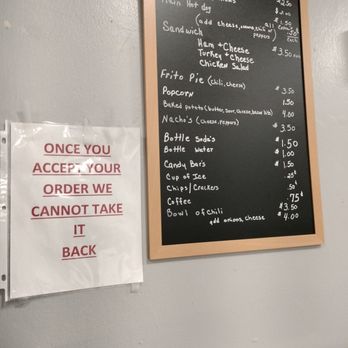 Plain Hot dog
(add cheese, onions, chili or peppers)
all
.50¢
Each
Sandwich
Ham + Cheese
Turkey + Cheese
Chicken Salad
$3.50
Frito Pie (chili, cheese)
$3.50
Popcorn
1.50
Baked potato (butter, sour, cheese, bacon bits)
4.00
Nacho's (cheese, peppers)
$3.50
Bottle Soda's $1.50
Bottle Water $1.00
Candy Bar's $1.50
Cup of Ice .25¢
Chips/Crackers .50¢
Coffee .75¢
Bowl of Chili $3.50
add onions, cheese $4.00
ONCE YOU
ACCEPT YOUR
ORDER WE
CANNOT TAKE
IT
BACK